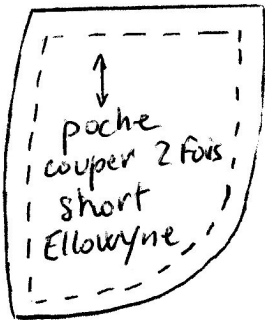 poche
couper 2 Fois
short
Ellowyne